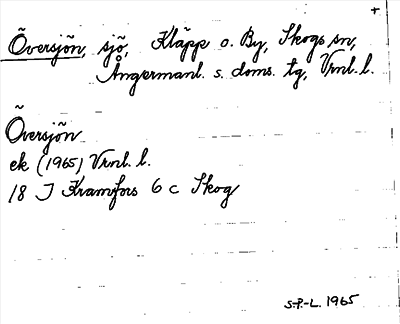 +
Översjön, sjö, Kläpp o. By, Skogs sn,
Ångermanl. s. doms. tg, Vrnl. l.
Översjön
ek (1965) Vrnl. l.
18 J Kramfors 6 c Skog
S.P.-L. 1965